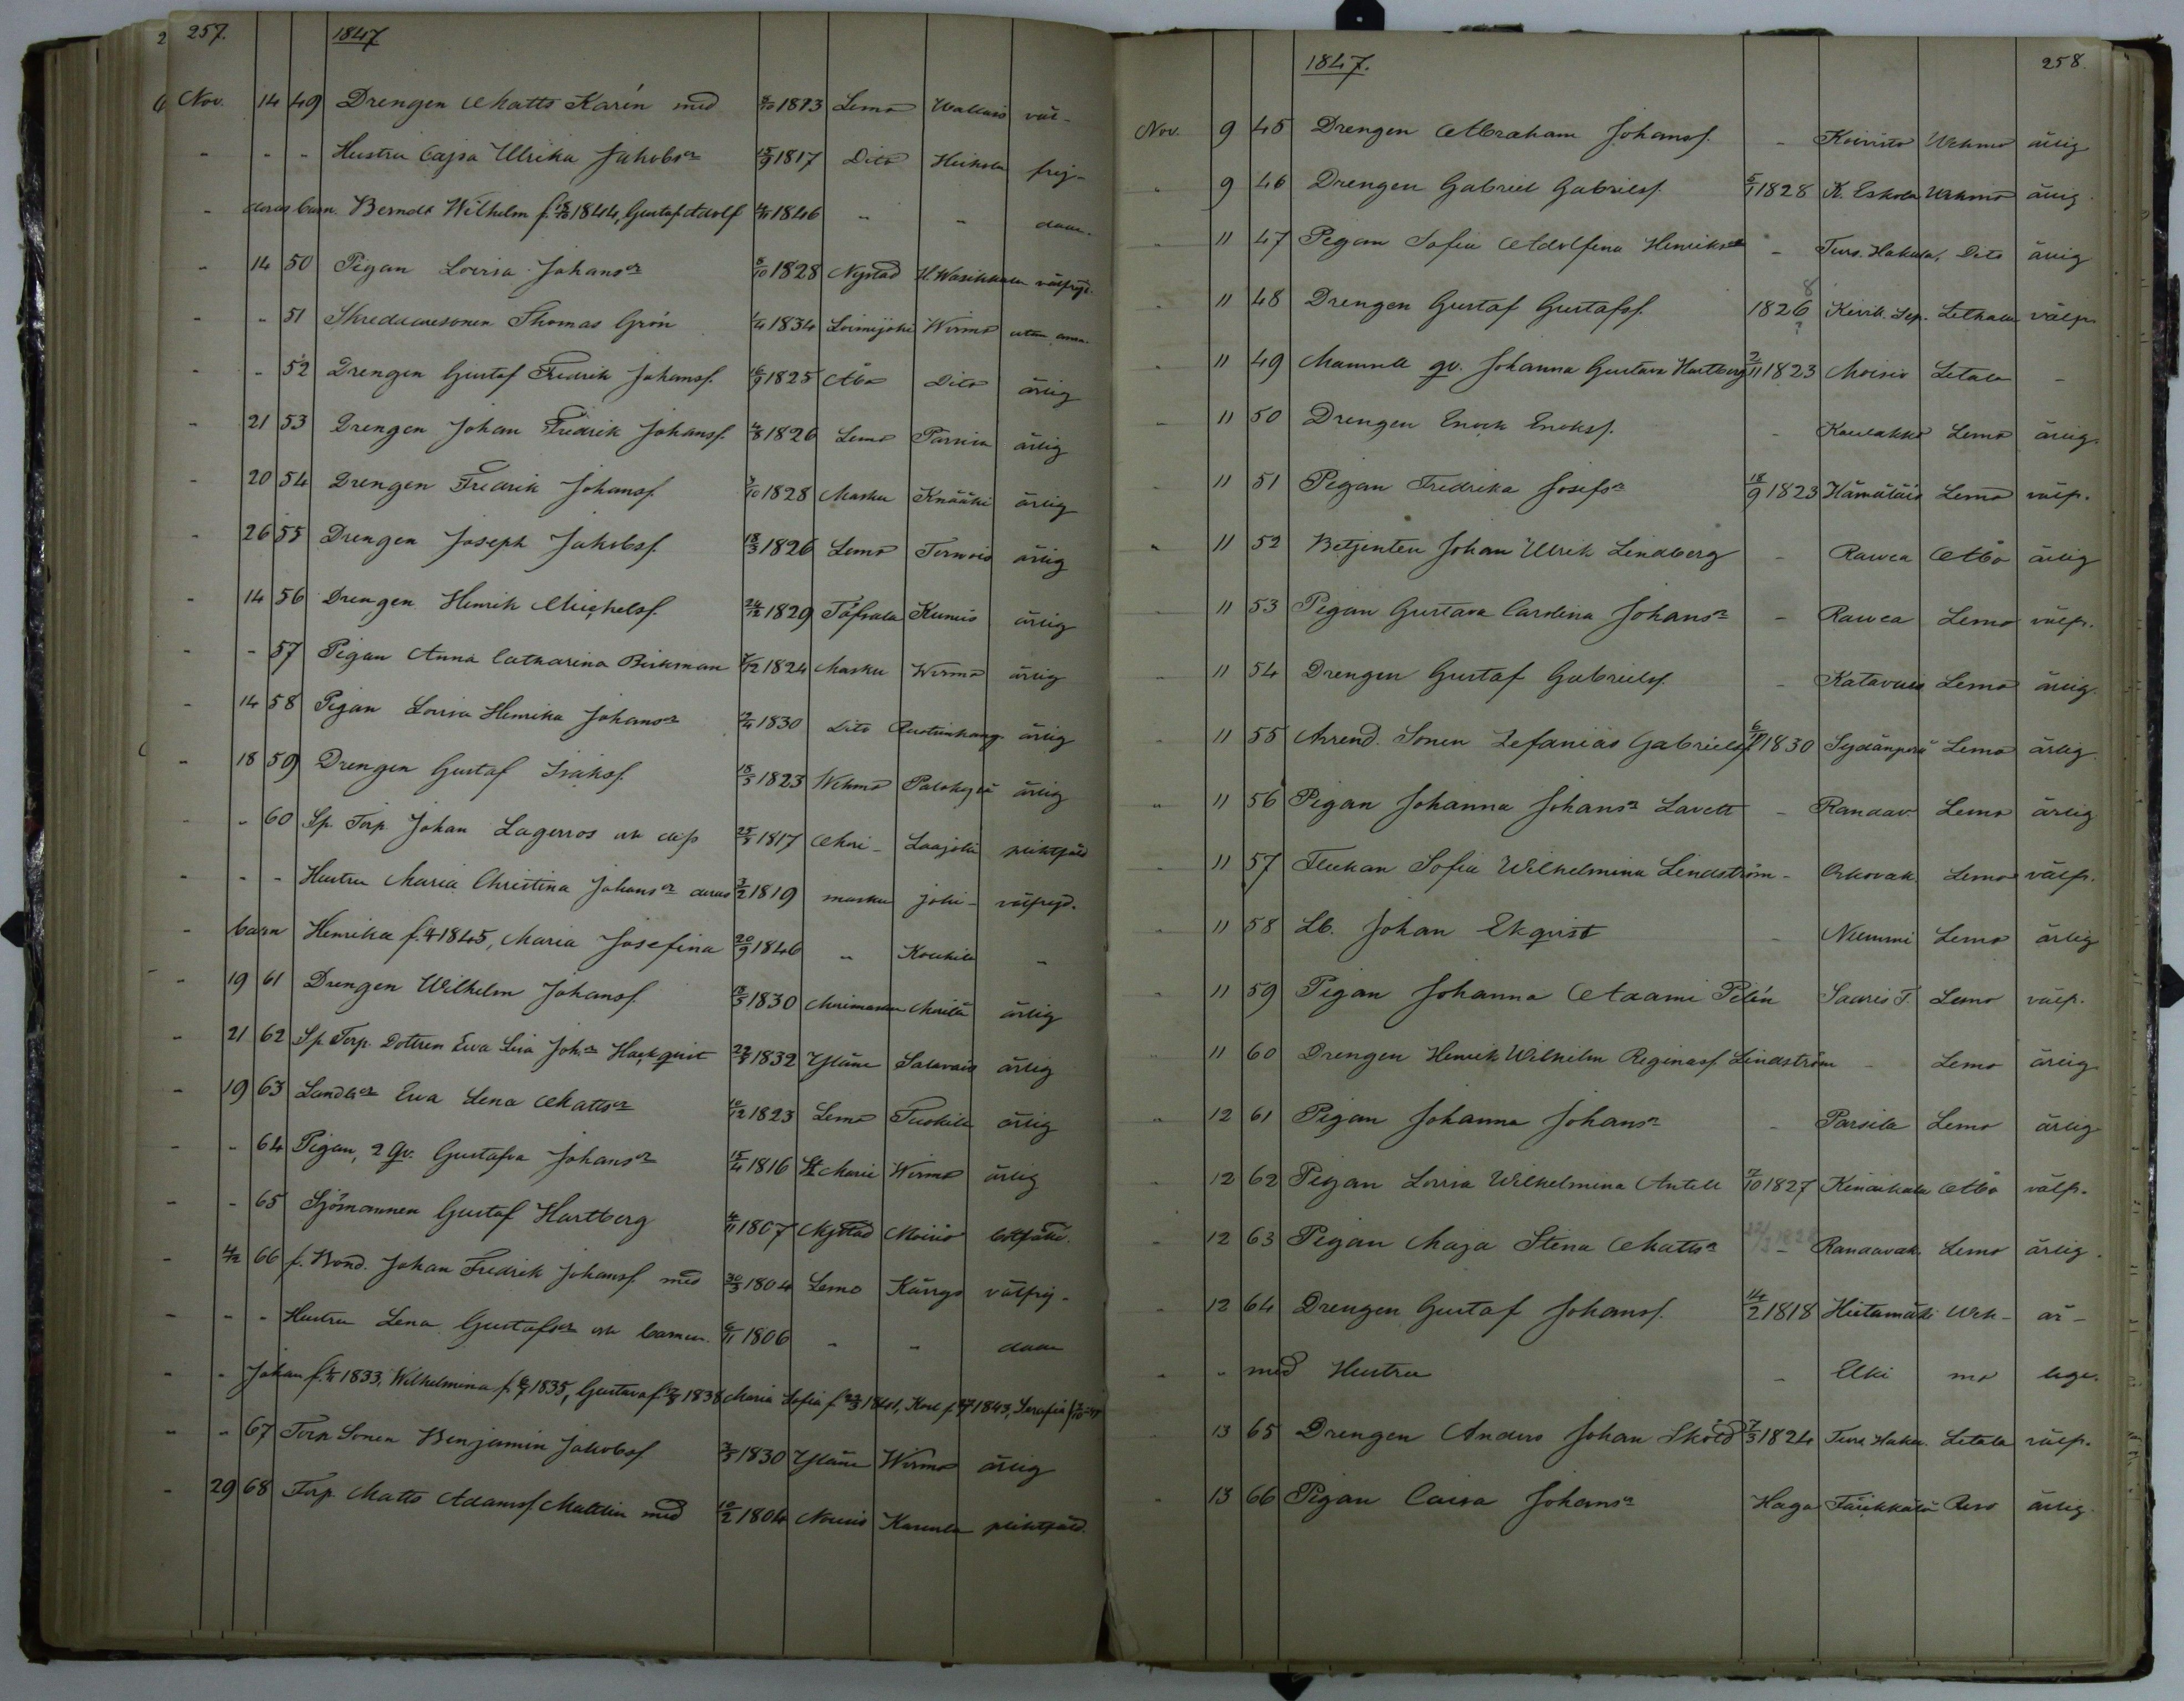 257. 1847
Nov. 14 49 Drengen Matts Karén med 1823 Lemo Wallais väl-
" " " Hustru Cajsa Ulrika Jakobsdr 15/9 1817 Dito Heikola frej-
" deras barn. Berndt Wilhelm f. 1844, Gustaf Adolf 1846 " " dade.
" 14 50 Pigan Lovisa Johansdr 8/10 1828 Nystad H. Wasikkala välfrejd.
" " 51 Skreddaresonen Thomas Grön 1/4 1834 Loimijoki Wirmo utan anm.
" " 52 Drengen Gustaf Fredrik Johansf. 16/9 1825 Åbo Dito ärlig
" 21 53 Drengen Johan Fredrik Johansf. 4/8 1826 Lemo Parsila ärlig
" 20 54 Drengen Fredrik Johansf. 3/10 1828 Masku Knaäki ärlig
" 26 55 Drengen Joseph Jakobsf. 18/3 1826 Lemo Tervois ärlig
" 14 56 Drengen Henrik Michelsf. 24/12 1829 Töfsala Kunnis ärlig
" " 57 Pigan Anna Catharina Birkman 7/12 1824 Masku Wirmo ärlig
" 14 58 Pigan Lovisa Henrika Johansdr 1830 Dito ärlig
" 18 59 Drengen Gustaf Isaksf. 1823 Wehmo Palokylä ärlig
" " 60 Sp. Torp. Johan Lagerros 1817 Mari- Laajoki pliktfäld
" " " Hustru Maria Christina Johansdr deras 3/2 1819 masku joki- välfrejd.
" barn Henrika f. 1845, Maria Josefina 20/9 1846 " Koukila "
" 19 61 Drengen Wilhelm Johansf. 1830 Marimasku Marilä ärlig
" 21 62 Sp. Torp. Dottren Eva Lisa Joh.dr Hackqvist 1832 Yläne Salavais ärlig
" 19 63 Landbdr Eva Lena Mattsdr 10/12 1823 Lemo Tuokila ärlig
" " 64 Pigan, 2 Qv. Gustafva Johansdr 15/4 1816 St Marie Wirmo ärlig
" " 65 Sjömannen Gustaf Hartberg 4/11 1807 Nystad Moisio botfälld.
" 66 f. Bond. Johan Fredrik Johansf. med 30/3 1804 Lemo Kärrys välfrej-
" " " Hustru Lena Gustafsdr och barnen. 6/11 1806 " " dade
" " Johan f. 1833, Wilhelmina f. 1835, Gustava f. 1838 Maria Sofia f. 23/3 1841, Karl f. 1843, Serafia
" " 67 Torp. Sonen Benjamin Jakobsf 1830 Yläne Wirmo ärlig
" 29 68 Torp. Matts Adamsf. Mattlin med 10/2 1804 Nousis Karenla pliktfäld.
1847. 258
Nov. 9 45 Drengen Abraham Johansf. - Koivisto Wehmo ärlig
" 9 46 Drengen Gabriel Gabrielsf. 1828 K. Eskola Wehmo ärlig.
" 11 47 Pegan Sofia Adolfena Henriksdr - Turs. Hakula, Dito ärlig
" 11 48 Drengen Gustaf Gustafsf. 1826 8 ? Kivik. Sep. Lethala välfr.
" 11 49 Mamsell qv. Johanna Gustava Hartberg 2/11 1823 Moisio Letala -
" 11 50 Drengen Enock Enoksf. - Koulakko Lemo ärlig.
" 11 51 Pegan Fredrika Josefsdr 18/9 1823 Hämäläis Lemo välfr.
" 11 52 Betjenten Johan Ulrik Lindberg - Rawea Åbo ärlig
" 11 53 Pigan Gustava Carolina Johansdr - Rawea Lemo välfr.
" 11 54 Drengen Gustaf Gabrielsf. - Katavais Lemo ärlig.
" 11 55 Arrend. Sonen Zefanias Gabrielsf 1830 Sydänperä Lemo ärlig.
" 11 56 Pigan Johanna Johansdr Lavett - Randav. Lemo ärlig
" 11 57 Flickan Sofia Wilhelmina Lindström - Orkovak. Lemo välfr.
" 11 58 Lb. Johan Ekqvist - Nummi Lemo ärlig
" 11 59 Pigan Johanna Adami Pelén Sauris T. Lemo välfr.
" 11 60 Drengen Henrik Wilhelm Reginasf. Lindström - Lemo ärlig
" 12 61 Pigan Johanna Johansdr - Parsila Lemo ärlig
" 12 62 Pigan Lovisa Wilhelmina Antell 7/10 1827 Kinaikala Åbo välfr.
" 12 63 Pigan Maja Stena Mattsdr - Randavak. Lemo ärlig.
" 12 64 Drengen Gustaf Johansf. 14/2 1818 Hiitamäki Weh- är-
" " med Hustru - Elki mo lige.
" 13 65 Drengen Anders Johan Sköld 7/3 1824 Turs Haku. Letala välfr.
" 13 66 Pigan Caisa Johansdr Haga Täikkälä Reso ärlig.